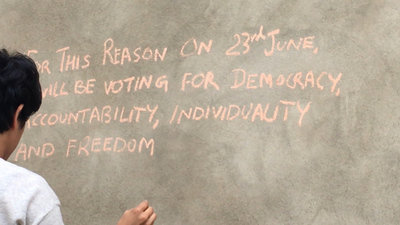 For This Reason On 23rd June,
will be voting for Democracy,
Accountability, Individuality
and Freedom